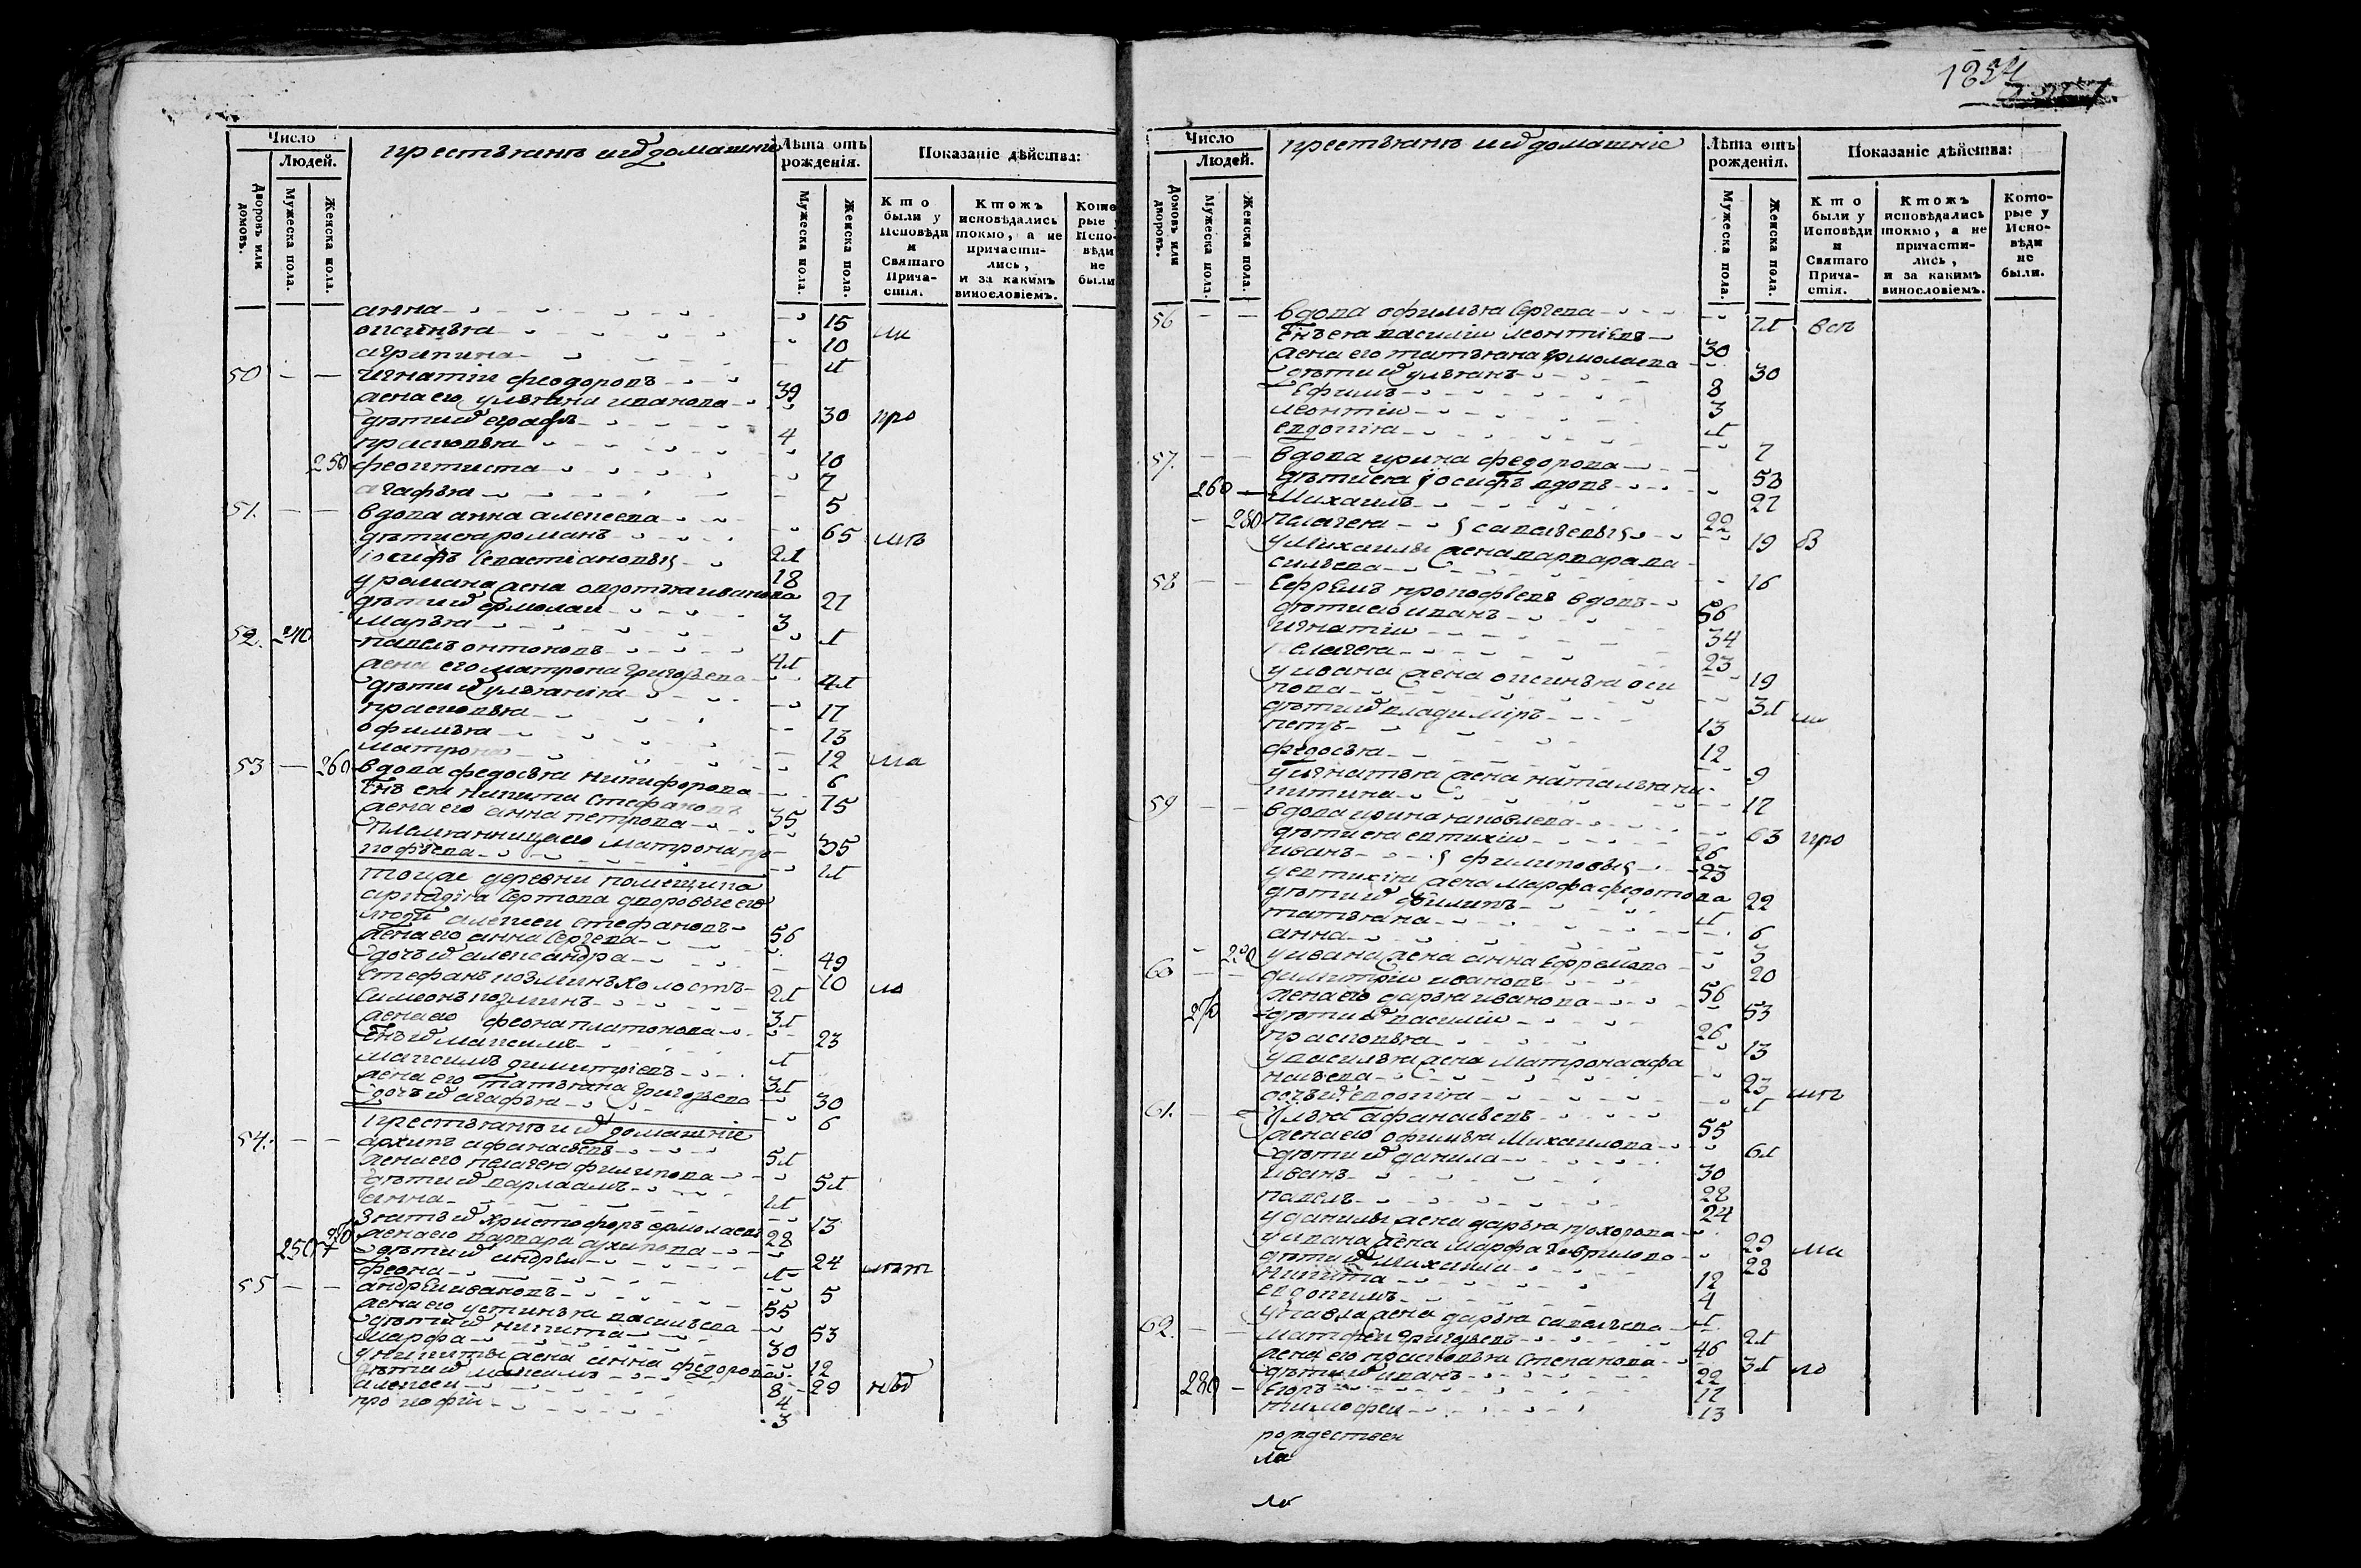 1854
Число
Людей.
Дворовъ или домовъ.
Мужеска пола.
Женска пола.
крестьянъ и ихъ домашніе
Лѣта отъ рожденія.
Мужеска пола.
Женска пола.
Показаніе дѣйства:
Кто были у Исповѣди и Святаго Прича-стія.
Ктожъ исповѣдались токмо, а не причасти-лись, и за какимъ винословіемъ.
анна 15
10
агрипина
50 игнатіи феодоровъ 39
жена его ульяна иванова 30
дѣти их еграфъ 4
прасковья 10
250 феоктиста 7
агафья 5
51. вдова анна алексеева 65
дѣти ея романъ
іосифъ севастіановы 18
у романа жена авдотья иванова 21
дѣти их ермолаи 3
марья
52. 240 павелъ онтоновъ
жена его матрона григорьева
дѣти их ульянія 17
прасковья 13
офимья 12
матрона 6
53 260 вдова федосья никифорова 75
снъ ея никита стефановъ 35
жена его анна петрова 35
племянница его матрона про
кофьева
тоиже деревни помещика
аркадія сертова дворовые его
люди алексеи стефановъ 56
жена его анна сергева 49
дочь их александра 10
стефанъ козминъ холостъ
симеонъ козминъ
жена его феона платонова 23
снъ их максимъ
максимъ димитріевъ
жена его татьяна григорьева 30
дочь их агафья 6
крестьянъ и их домашніе
54. архипъ афанасьевъ
жена его пелагея филипова
дѣти их варлаамъ
анна 13
зять их христофоръ ермолаевъ 28
250 270 жена его варвара архипова 24
дѣти их андреи
феона 5
55 андреи ивановъ 55
жена его устинья васильева 53
дѣти их никита 30
марфа 12
у никиты жена анна федорова 29
дѣти их максимъ 8
алексеи 4
прокофіи 3
Число
Людей.
Домовъ или дворовъ.
Мужеска пола.
Женска пола.
крестьянъ и ихъ домашніе
Лѣта отъ рожденія.
Мужеска пола.
Женска пола.
Показаніе дѣйства:
Кто были у Исповѣди и Святаго Прича-стія.
Ктожъ исповѣдались токмо, а не причасти-лись, и за какимъ винословіемъ.
Кото-рые у Испо-вѣди не были.
56 вдова офимья сергева
снъ ея василіи леонтіевъ 30
жена его татьяна ермолаева 30
дѣти их ульянъ 8
ефимъ 3
леонтіи
евдокія 7
57. вдова ирина федорова 58
дѣти ея іосифъ вдовъ 27
260 михаилъ 22
280 пелагея савельевы 19
у михаилы жена варвара ва
сильева 16
58 ефремъ прокофьевъ вдовъ 56
дѣти его иванъ 34
игнатіи 23
пелагея 19
у ивана жена аксинья оси
пова
дѣти их владиміръ 13
петръ 12
федосья 9
у игнатья жена наталья ни
китина 17
59 вдова ирина яковлева 63
дѣти ея евтихіи 26
иванъ филиповы 23
у евтихія жена марфа федотова 22
дѣти их филипъ
татьяна 6
анна 3
290 у ивана жена анна ефремова 20
60 димитріи ивановъ 56
жена его дарья иванова 53
270 дѣти их василіи 26
прасковья 13
у василья жена матрона афа
насьева 23
дочь их евдокія
61. илья афанасьевъ 55
жена его офимья михаилова
дѣти их данила 30
иванъ 28
павелъ 24
у данилы жена дарья прохорова 29
у ивана жена марфа гаврилова 28
дѣти их михаила 12
никита 4
евдокимъ
у павла жена дарья савельева
62. матфеи григорьевъ 46
жена его прасковья степанова
дѣти их иванъ 22
280 егоръ 17
тимофеи 13
рождествен